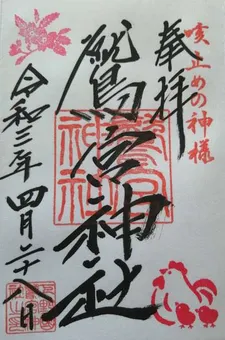 咳止めの神様
奉拝
鷲宮神社
鷲宮
神社
令和三年四月二十八日